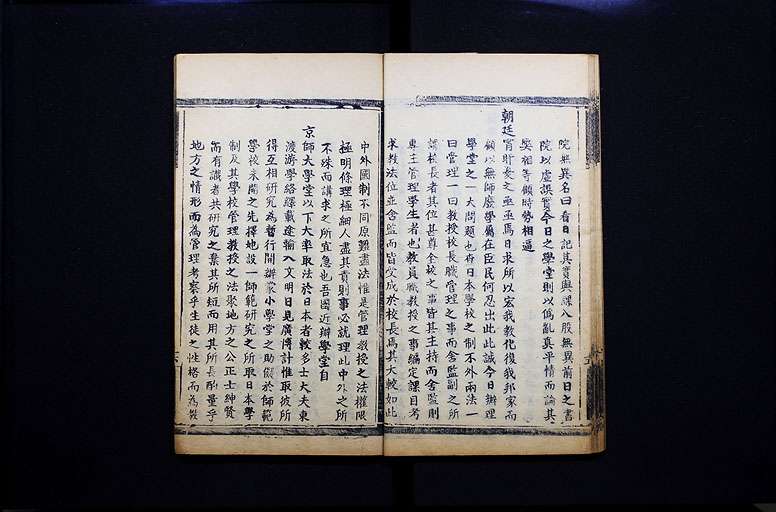 院無異名曰看日記其實與課八股無異前日之書
院以虛誤實今日之學堂則以偽亂真平情而論其
弊相等顧時勢相逼
朝廷宵旰憂之亟亟焉日求所以宏我教化復我邦家而
顧以無師廢學屬在臣民何忍出此此誠今日辦理
學堂之一大問題也查日本學校之制不外兩法一
曰管理一曰教授校長職管理之事而舍監副之所
謂校長者其位甚尊全校之事皆其主持而舍監則
專主管理學生者也教員職教授之事編定課目考
求教法位並舍監而皆受成於校長焉其大較如此
中外國制不同原難盡法惟是管理教授之法權限
極明條理極細人盡其責則事必就理此中外之所
不殊而講求之所宜急也吾國近辦學堂自
京師大學堂以下大率取法於日本者較多士大夫東
渡游學絡繹載途輸入文明日見廣博計惟取彼所
得互相研究為暫行開辦蒙小學堂之助儗於師範
學校未開之先擇地設一師範研究之所取日本學
制及其學校管理教授之法聚地方之公正士紳賢
而有識者共研究之棄其所短而用其所長酌量乎
地方之情形而為管理考察乎生徒之性格而為教
五
六